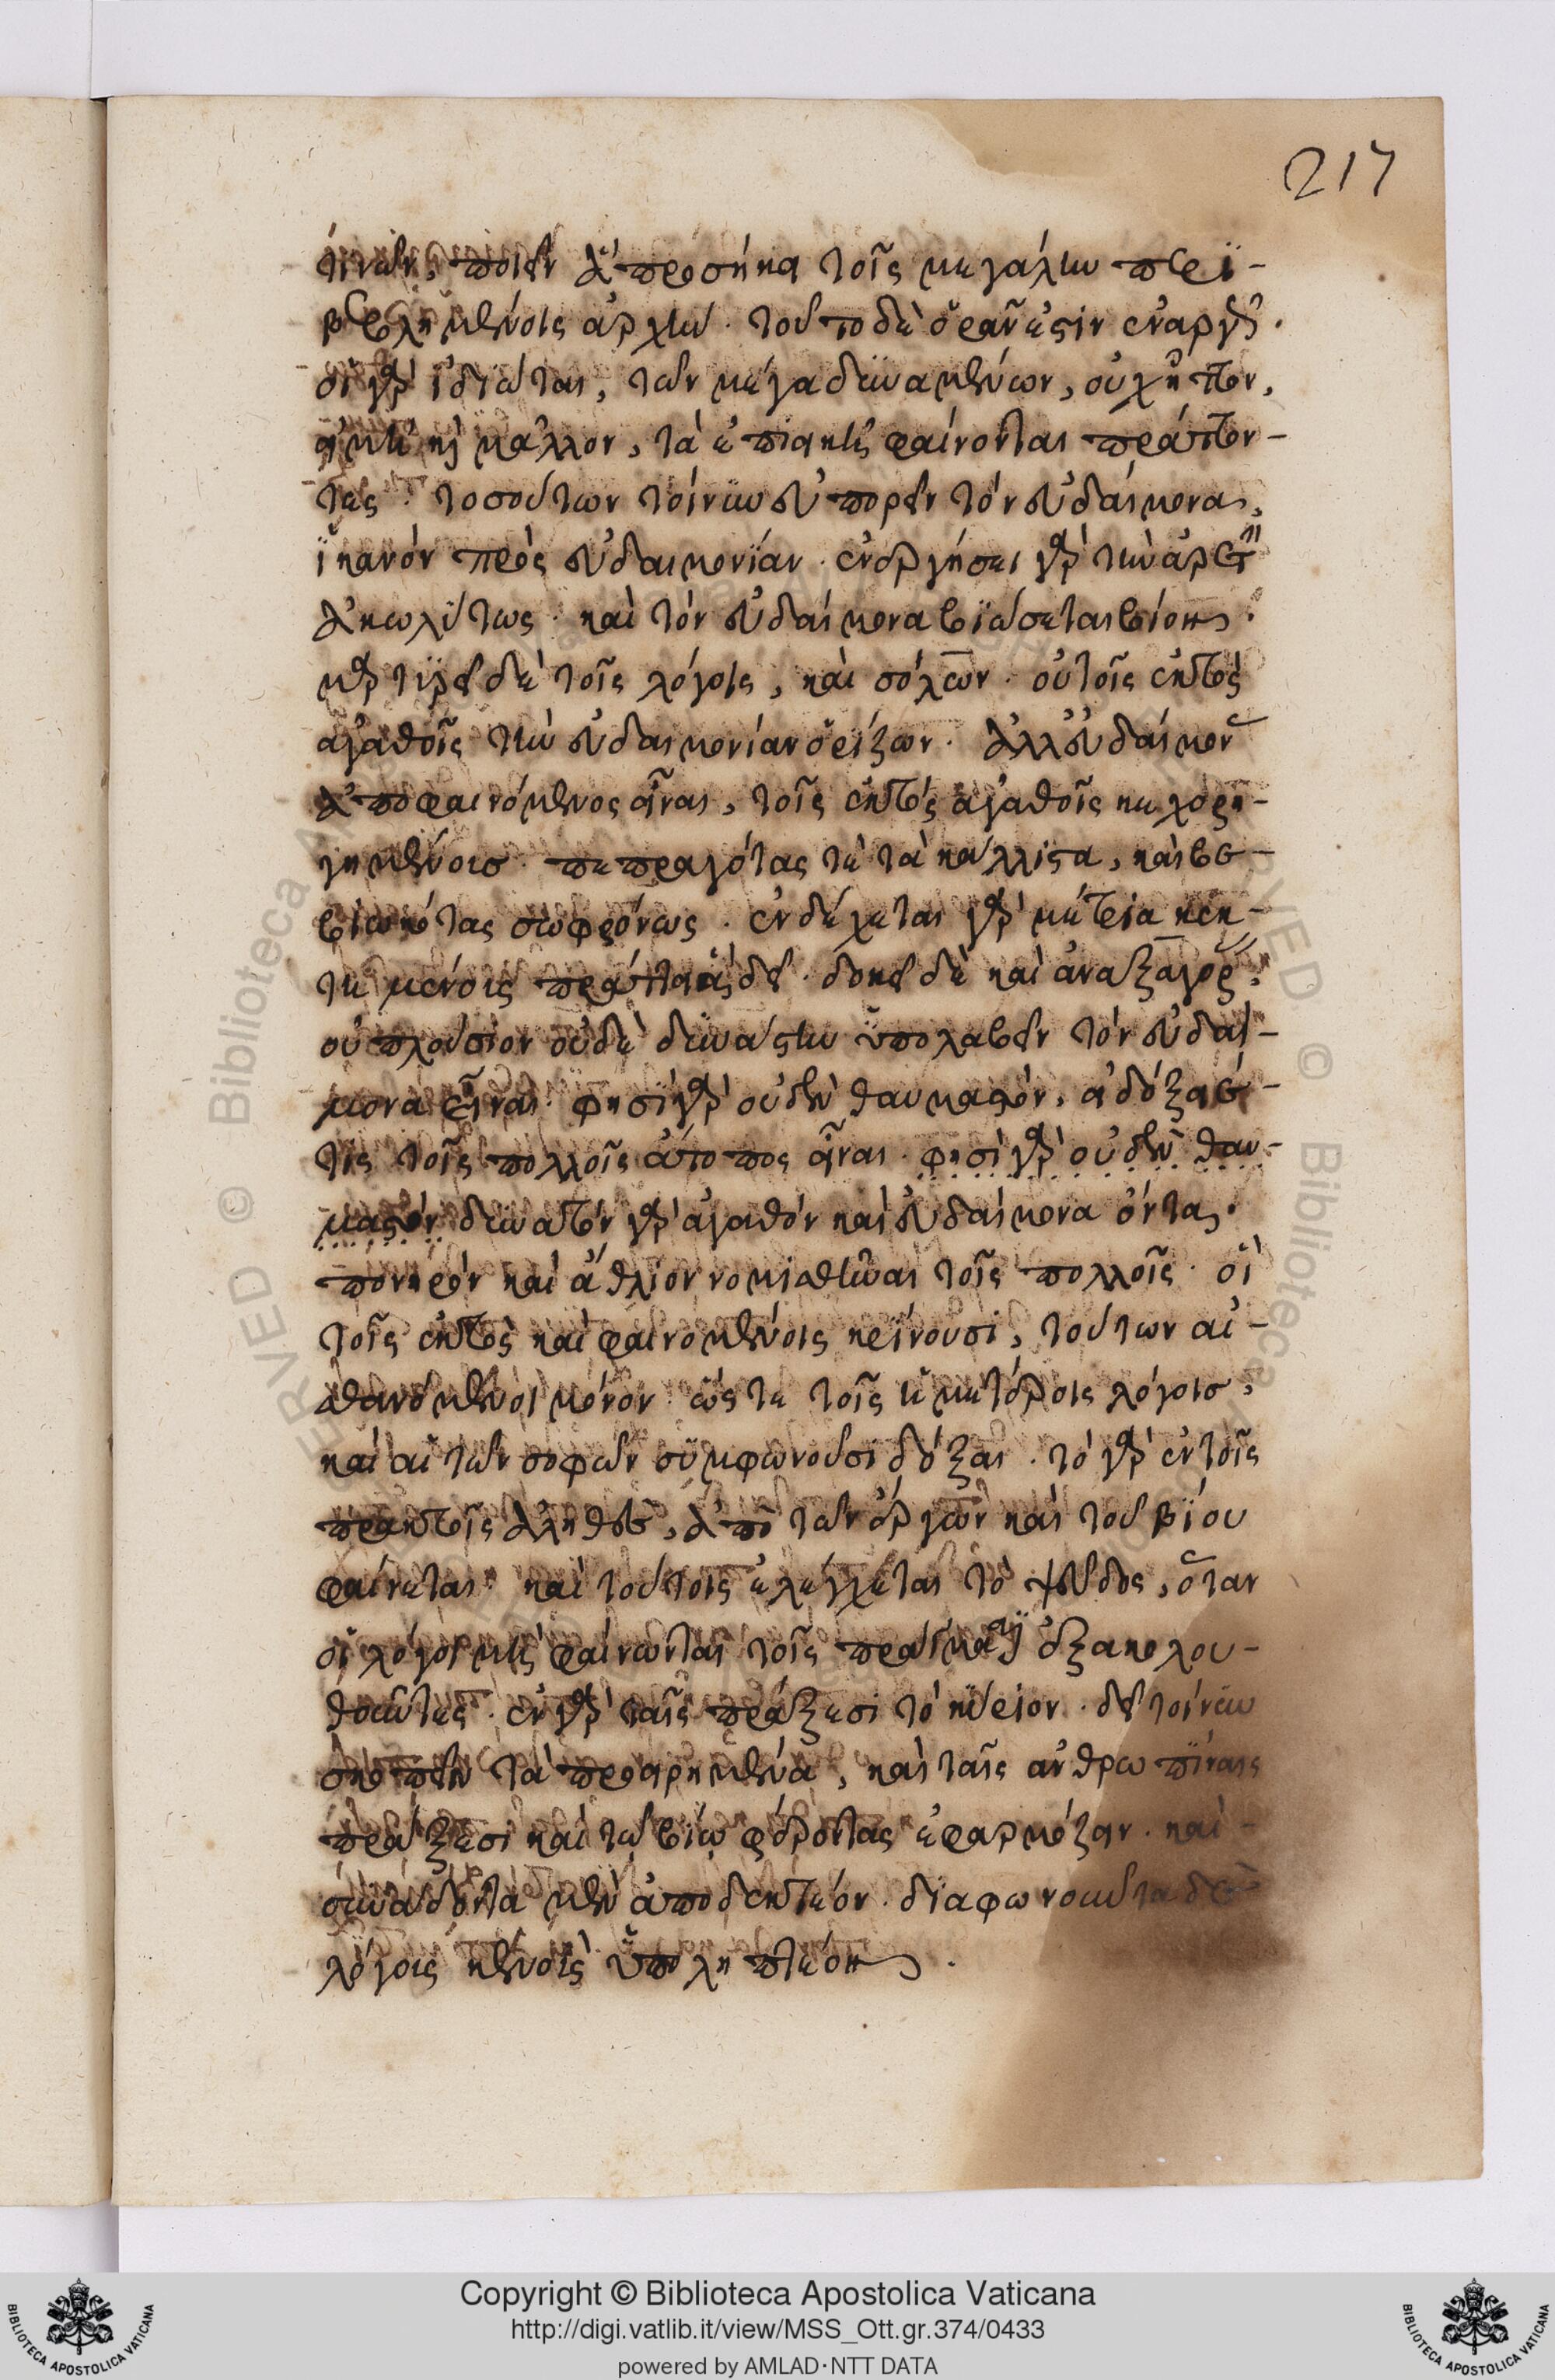 217
τινων, ποιεῖν ἃ προσήκει τοῖς μεγάλην περϊ-
βεβλημένοις ἀρχήν. τοῦτο δὲ ὁρᾶν ἐστιν ἐναργῶς.
οἱ γὰρ ἰδιῶται, τῶν μέγα δυναμένων, οὐχ ἧττον,
εἰ μὴ καὶ μᾶλλον, τὰ ἐπιεικῆ φαίνονται πράττον-
τες. τοσούτων τοίνυν εὐπορεῖν τὸν εὐδαίμονα,
ἱκανὸν πρὸς εὐδαιμονίαν. ἐνεργήσει γὰρ τὴν ἀρετὴν
ἀκωλύτως. καὶ τὸν εὐδαίμονα βιώσεται βίον.
μαρτυρεῖ δὲ τοῖς λόγοις, καὶ σόλων. οὐ τοῖς ἐκτὸς
ἀγαθοῖς τὴν εὐδαιμονίαν ὁρίζων. ἀλλ' εὐδαίμονας
ἀποφαινόμενος εἶναι, τοῖς ἐκτὸς ἀγαθοῖς κεχορη-
γημένοισ. πεπραγότας τὲ τὰ κάλλιστα, καὶ βε-
βιωκότας σωφρόνως. ἐνδέχεται γὰρ μέτρια κεκ-
τημένοις πράττειν ἃ δεῖ. δοκεῖ δὲ καὶ ἀναξαγόρας
οὐ πλούσιον οὐδὲ δυνάστην ὑπολαβεῖν τὸν εὐδαί-
μονα εἶναι. φησὶ γὰρ οὐδὲν θαυμαστόν, εἰ δόξαιέ
τις τοῖς πολλοῖς ἄτοπος εἶναι. φησὶ γὰρ οὐδὲν θαυ-
μαστὸν δυνατὸν γὰρ ἀγαθὸν καὶ εὐδαίμονα ὄντα,
πονηρὸν καὶ ἄθλιον νομισθῆναι τοῖς πολλοῖς. οἳ
τοῖς ἐκτὸς καὶ φαινομένοις κρίνουσι, τούτων αἰ-
σθανόμενοι μόνον. ὥστε τοῖς ἡμετέροις λόγοισ,
καὶ αἱ τῶν σοφῶν συμφωνοῦσι δόξαι. τὸ γὰρ ἐν τοῖς
πρακτοῖς ἀληθὲς, ἀπὸ τῶν ἔργων καὶ τοῦ βίου
φαίνεται. καὶ τούτοις ἐλέγχεται τὸ ψεῦδος, ὅταν
οἱ λόγοι μὴ φαίνωνται τοῖς πράγμασιν ἐξακολου-
θοῦντες. ἐν γὰρ ταῖς πράξεσι τὸ κύριον. δεῖ τοίνυν
σκοπεῖν τὰ προειρημένα, καὶ ταῖς ἀνθρωπίναις
πράξεσι καὶ τῷ βίῳ φέροντας ἐφαρμόζειν. καὶ-
συνάδοντα μὲν ἀποδεκτέον. διαφωνοῦντα δὲ
λόγοις κενοῖς ὑποληπτέον.
Copyright © Biblioteca Apostolica Vaticana
http://digi.vatlib.it/view/MSS_Ott.gr.374/0433
powered by AMLAD·NTT DATA